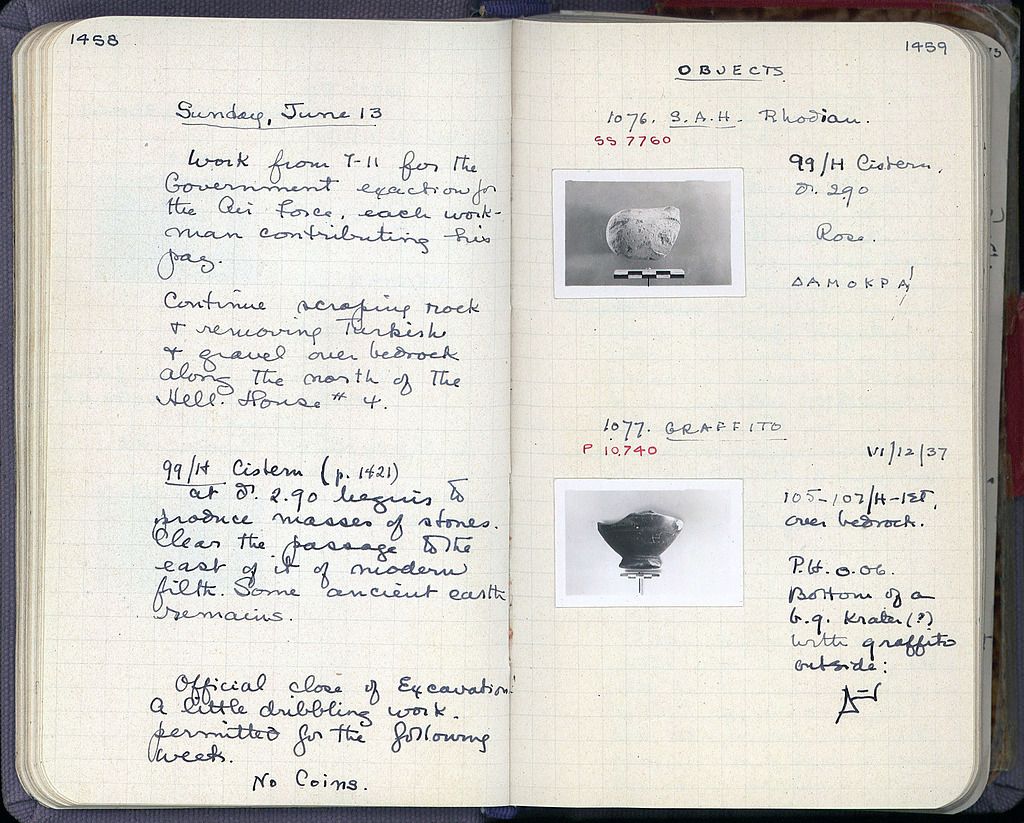 1458
Sunday, June 13
Work from 7-11 for the
Government exaction for
the Air Force, each work-
man contributing his
pay.
Continue scraping rock
& removing Turkish
& gravel over bedrock
along the north of the
Hell. House # 4.
99/H Cistern (p. 1421)
at δ. 2.90 begins to
produce masses of stones.
Clear the passage to the
east of it of modern
filth. Some ancient earth
remains.
Official close of Excavation.
A little dribbling work
permitted for the following
week.
No Coins.
1459
OBJECTS
1076. S.A.H. Rhodian.
SS 7760
99/H Cistern,
δ. 2.90
Rose.
ΔΑΜΟΚΡΑ
1077. GRAFFITO
P 10,740
VI/12/37
105-107/H-
over bedrock.
P.H. 0.06.
Bottom of a
b.g. Krater (?)
with graffito
outside: